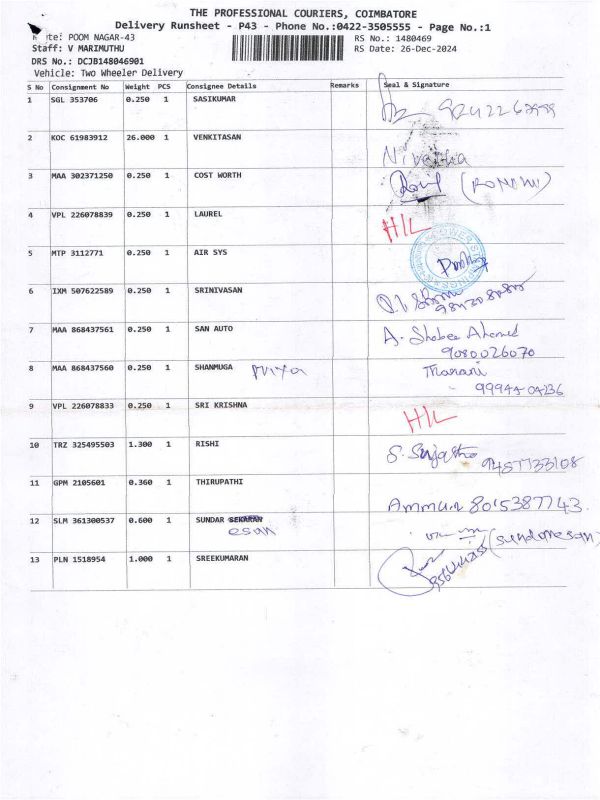 THE PROFESSIONAL COURIERS, COIMBATORE
Delivery Runsheet - P43 - Phone No.:0422-3505555 - Page No.:1
Route: POOM NAGAR-43 RS No.: 1480469
Staff: V MARIMUTHU RS Date: 26-Dec-2024
DRS No.: DCJB148046901
Vehicle: Two Wheeler Delivery
S No Consignment No Weight PCS Consignee Details Remarks Seal & Signature
1 SGL 353706 0.250 1 SASIKUMAR
2 KOC 61983912 26.000 1 VENKITASAN Nivetha
3 MAA 302371250 0.250 1 COST WORTH
4 VPL 226078839 0.250 1 LAUREL H/L
5 MTP 3112771 0.250 1 AIR SYS
6 IXM 507622589 0.250 1 SRINIVASAN
7 MAA 868437561 0.250 1 SAN AUTO A. Shabee Ahamed
9080026070
8 MAA 868437560 0.250 1 SHANMUGA Priya Tharani
99944 04236
9 VPL 226078833 0.250 1 SRI KRISHNA H/L
10 TRZ 325495503 1.300 1 RISHI
11 GPM 2105601 0.360 1 THIRUPATHI Ammu 8015387743.
12 SLM 361300537 0.600 1 SUNDAR
esan (Sundaresan)
13 PLN 1518954 1.000 1 SREEKUMARAN